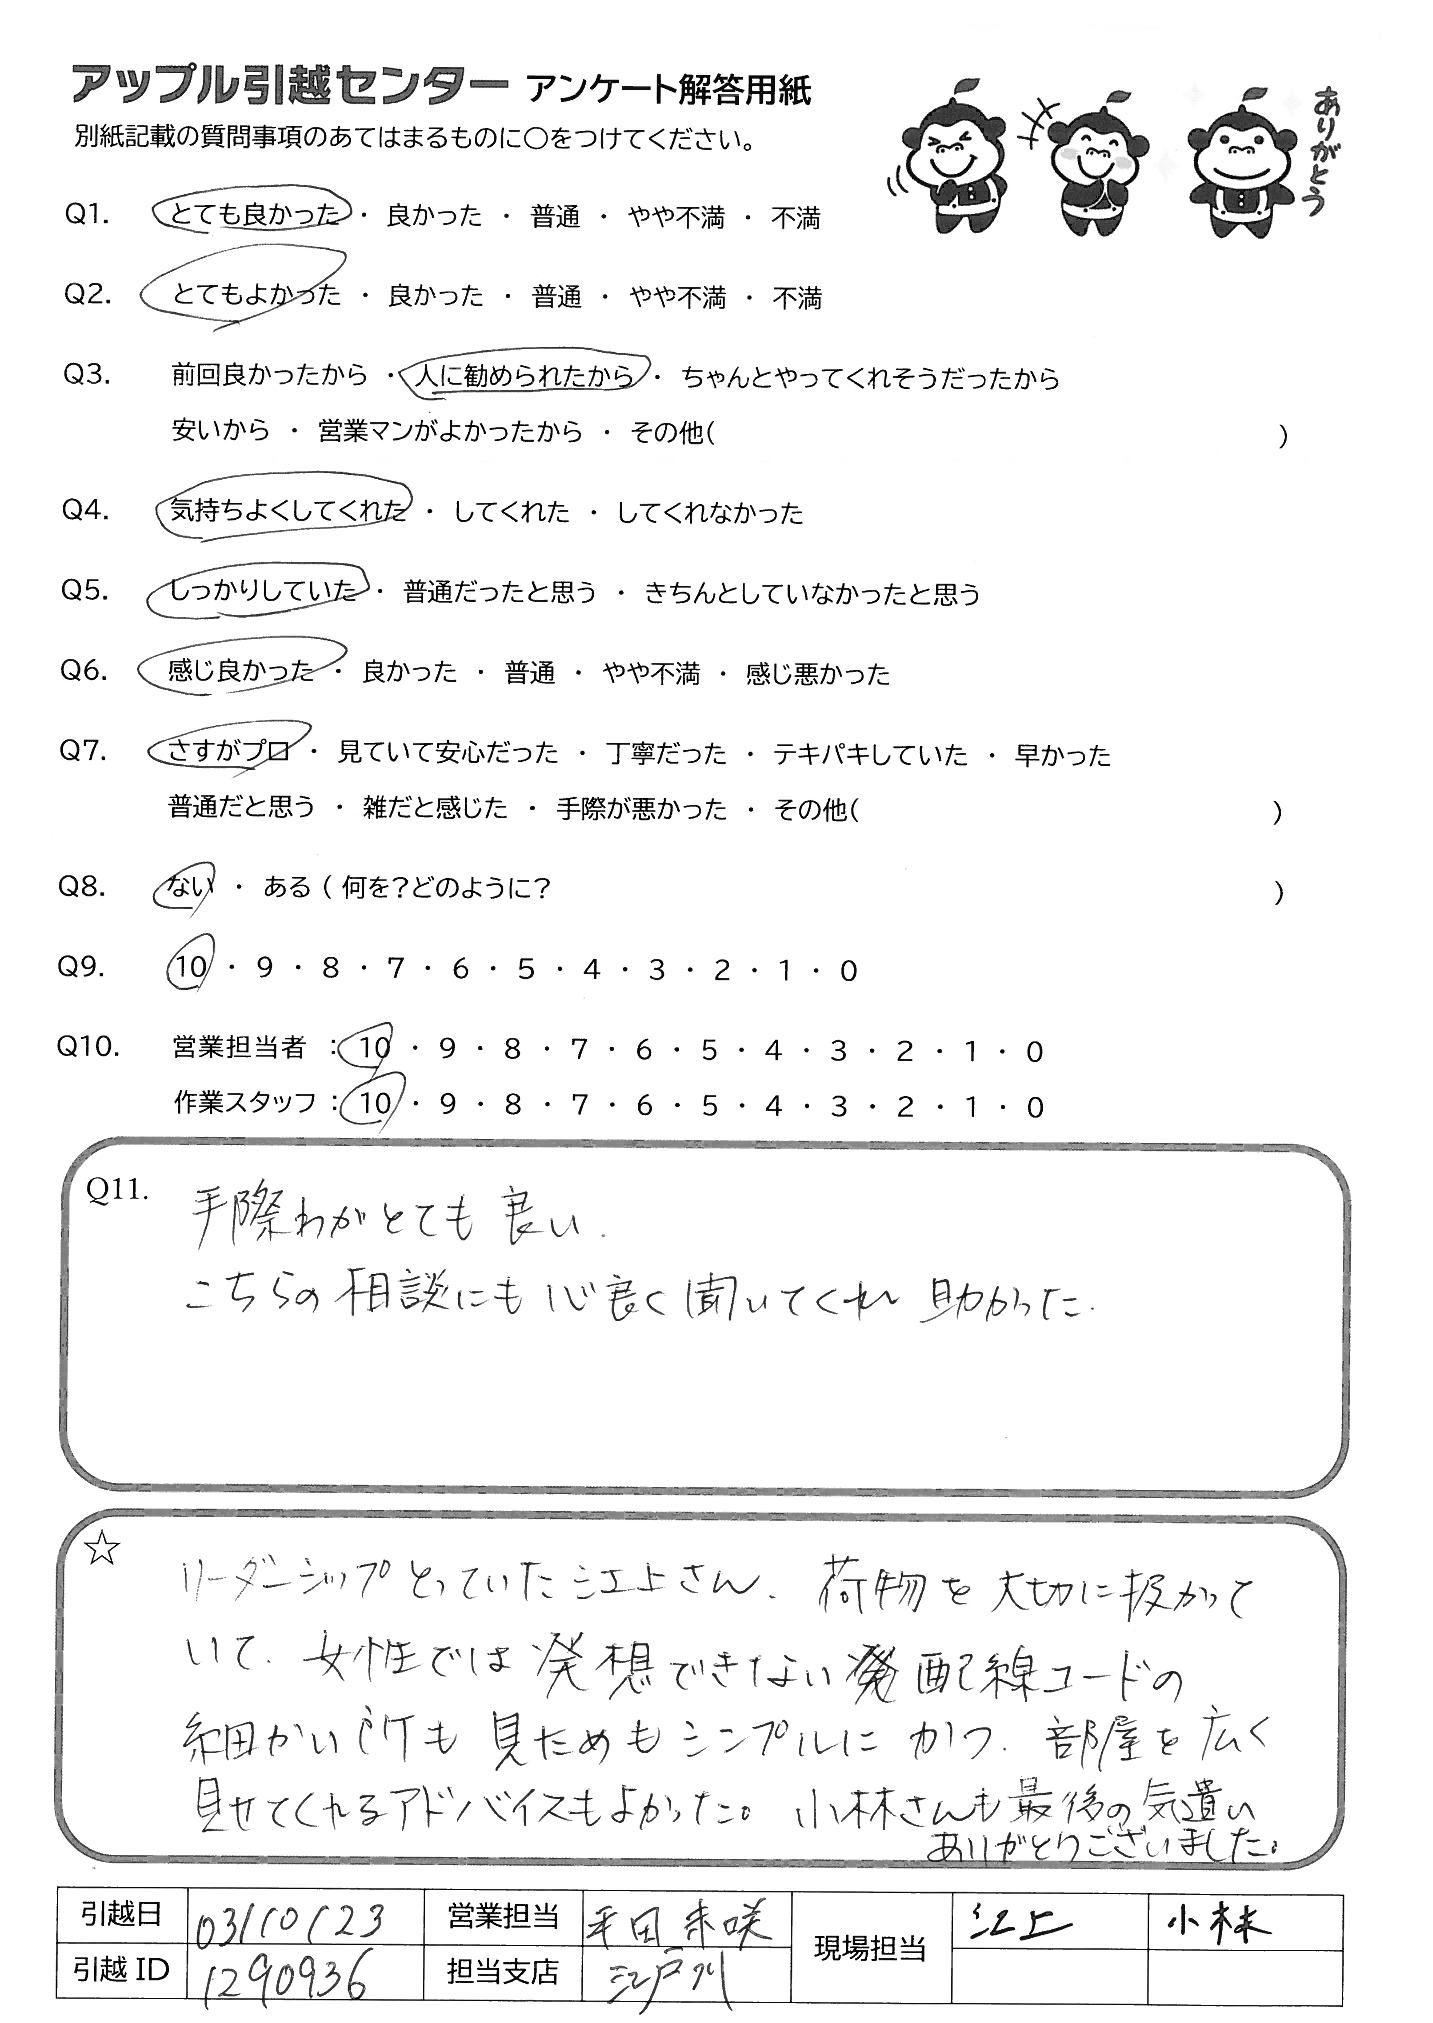 アップル引越センター アンケート解答用紙
別紙記載の質問事項のあてはまるものに○をつけてください。
ありがとう
Q1. とても良かった ・ 良かった ・ 普通 ・ やや不満 ・ 不満
Q2. とてもよかった ・ 良かった ・ 普通 ・ やや不満 ・ 不満
Q3. 前回良かったから ・ 人に勧められたから ・ ちゃんとやってくれそうだったから
安いから ・ 営業マンがよかったから ・ その他( )
Q4. 気持ちよくしてくれた ・ してくれた ・ してくれなかった
Q5. しっかりしていた ・ 普通だったと思う ・ きちんとしていなかったと思う
Q6. 感じ良かった ・ 良かった ・ 普通 ・ やや不満 ・ 感じ悪かった
Q7. さすがプロ ・ 見ていて安心だった ・ 丁寧だった ・ テキパキしていた ・ 早かった
普通だと思う ・ 雑だと感じた ・ 手際が悪かった ・ その他( )
Q8. ない ・ ある ( 何を?どのように? )
Q9. 10 ・ 9 ・ 8 ・ 7 ・ 6 ・ 5 ・ 4 ・ 3 ・ 2 ・ 1 ・ 0
Q10. 営業担当者 : 10 ・ 9 ・ 8 ・ 7 ・ 6 ・ 5 ・ 4 ・ 3 ・ 2 ・ 1 ・ 0
作業スタッフ : 10 ・ 9 ・ 8 ・ 7 ・ 6 ・ 5 ・ 4 ・ 3 ・ 2 ・ 1 ・ 0
Q11. 手際わがとても良い.
こちらの相談にも心良く聞いてくれ 助かった.
☆ リーダーシップとっていた江上さん、荷物を大切に扱かって
いて、女性では発想できない 配線コードの
細かい所も見ためもシンプルに かつ、部屋を広く
見せてくれるアドバイスもよかった。小林さんも最後の気遣い
ありがとうございました。
引越日 03/10/23 営業担当 平田 未咲 現場担当 江上 小林
引越ID 1290936 担当支店 江戸川